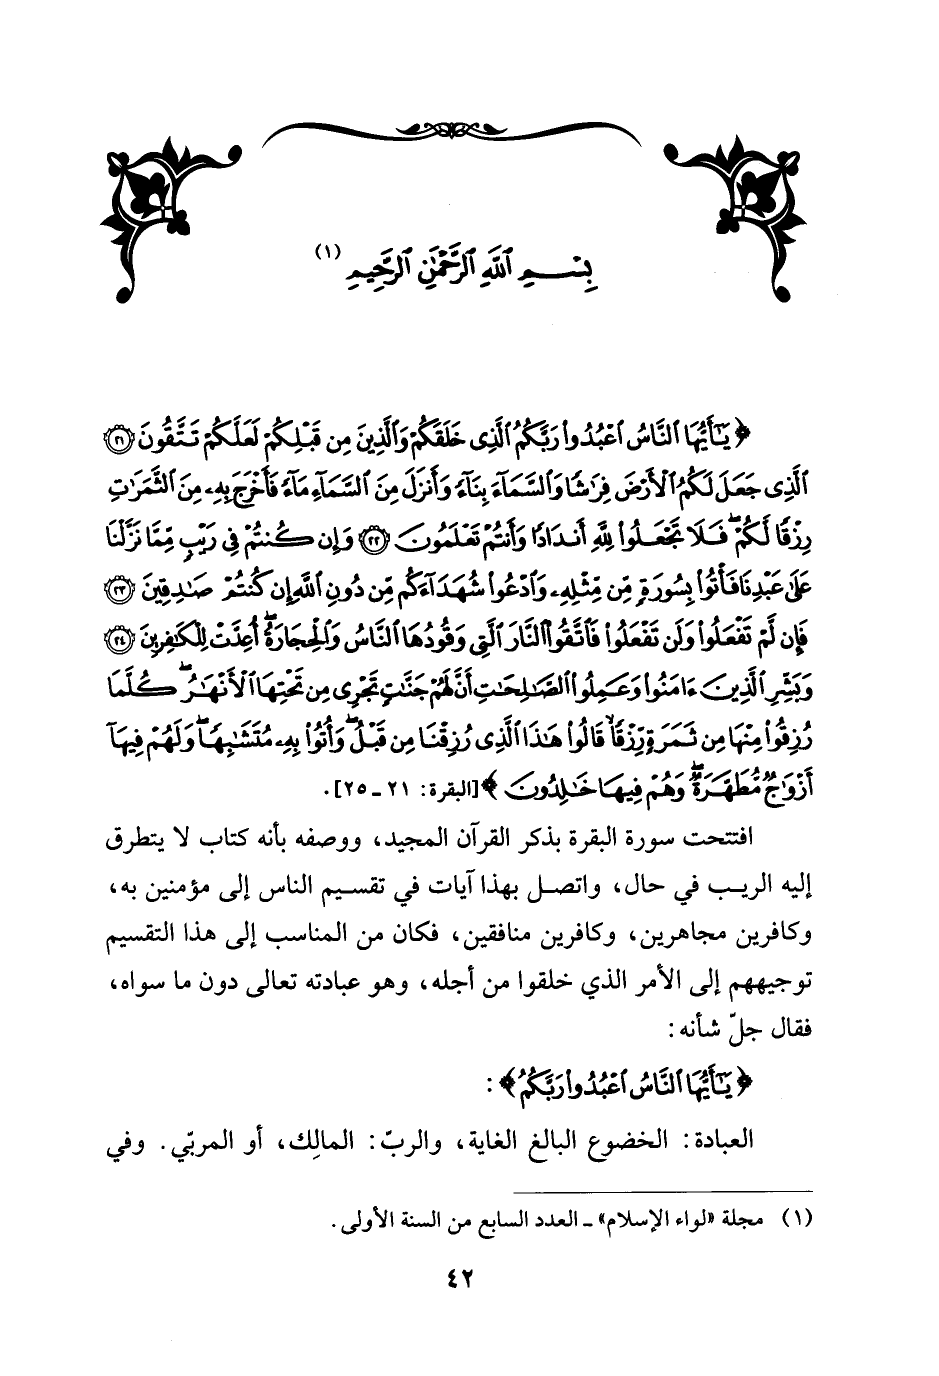 بِسْمِ ٱللَّهِ ٱلرَّحْمَٰنِ ٱلرَّحِيمِ (١)
﴿ يَٰٓأَيُّهَا ٱلنَّاسُ ٱعْبُدُوا۟ رَبَّكُمُ ٱلَّذِى خَلَقَكُمْ وَٱلَّذِينَ مِن قَبْلِكُمْ لَعَلَّكُمْ تَتَّقُونَ ٢١
ٱلَّذِى جَعَلَ لَكُمُ ٱلْأَرْضَ فِرَٰشًا وَٱلسَّمَآءَ بِنَآءً وَأَنزَلَ مِنَ ٱلسَّمَآءِ مَآءً فَأَخْرَجَ بِهِۦ مِنَ ٱلثَّمَرَٰتِ
رِزْقًا لَّكُمْ ۖ فَلَا تَجْعَلُوا۟ لِلَّهِ أَندَادًا وَأَنتُمْ تَعْلَمُونَ ٢٢ وَإِن كُنتُمْ فِى رَيْبٍ مِّمَّا نَزَّلْنَا
عَلَىٰ عَبْدِنَا فَأْتُوا۟ بِسُورَةٍ مِّن مِّثْلِهِۦ وَٱدْعُوا۟ شُهَدَآءَكُم مِّن دُونِ ٱللَّهِ إِن كُنتُمْ صَٰدِقِينَ ٢٣
فَإِن لَّمْ تَفْعَلُوا۟ وَلَن تَفْعَلُوا۟ فَٱتَّقُوا۟ ٱلنَّارَ ٱلَّتِى وَقُودُهَا ٱلنَّاسُ وَٱلْحِجَارَةُ ۖ أُعِدَّتْ لِلْكَٰفِرِينَ ٢٤
وَبَشِّرِ ٱلَّذِينَ ءَامَنُوا۟ وَعَمِلُوا۟ ٱلصَّٰلِحَٰتِ أَنَّ لَهُمْ جَنَّٰتٍ تَجْرِى مِن تَحْتِهَا ٱلْأَنْهَٰرُ ۖ كُلَّمَا
رُزِقُوا۟ مِنْهَا مِن ثَمَرَةٍ رِّزْقًا ۙ قَالُوا۟ هَٰذَا ٱلَّذِى رُزِقْنَا مِن قَبْلُ ۖ وَأُتُوا۟ بِهِۦ مُتَشَٰبِهًا ۖ وَلَهُمْ فِيهَآ
أَزْوَٰجٌ مُّطَهَّرَةٌ ۖ وَهُمْ فِيهَا خَٰلِدُونَ ﴾ [البقرة: ٢١ - ٢٥].
افتتحت سورة البقرة بذكر القرآن المجيد، ووصفه بأنه كتاب لا يتطرق
إليه الريب في حال، واتصل بهذا آيات في تقسيم الناس إلى مؤمنين به،
وكافرين مجاهرين، وكافرين منافقين، فكان من المناسب إلى هذا التقسيم
توجيههم إلى الأمر الذي خلقوا من أجله، وهو عبادته تعالى دون ما سواه،
فقال جلّ شأنه:
﴿ يَٰٓأَيُّهَا ٱلنَّاسُ ٱعْبُدُوا۟ رَبَّكُمُ ﴾:
العبادة: الخضوع البالغ الغاية، والربّ: المالِك، أو المربّي. وفي
(١) مجلة «لواء الإسلام» - العدد السابع من السنة الأولى.
٤٢